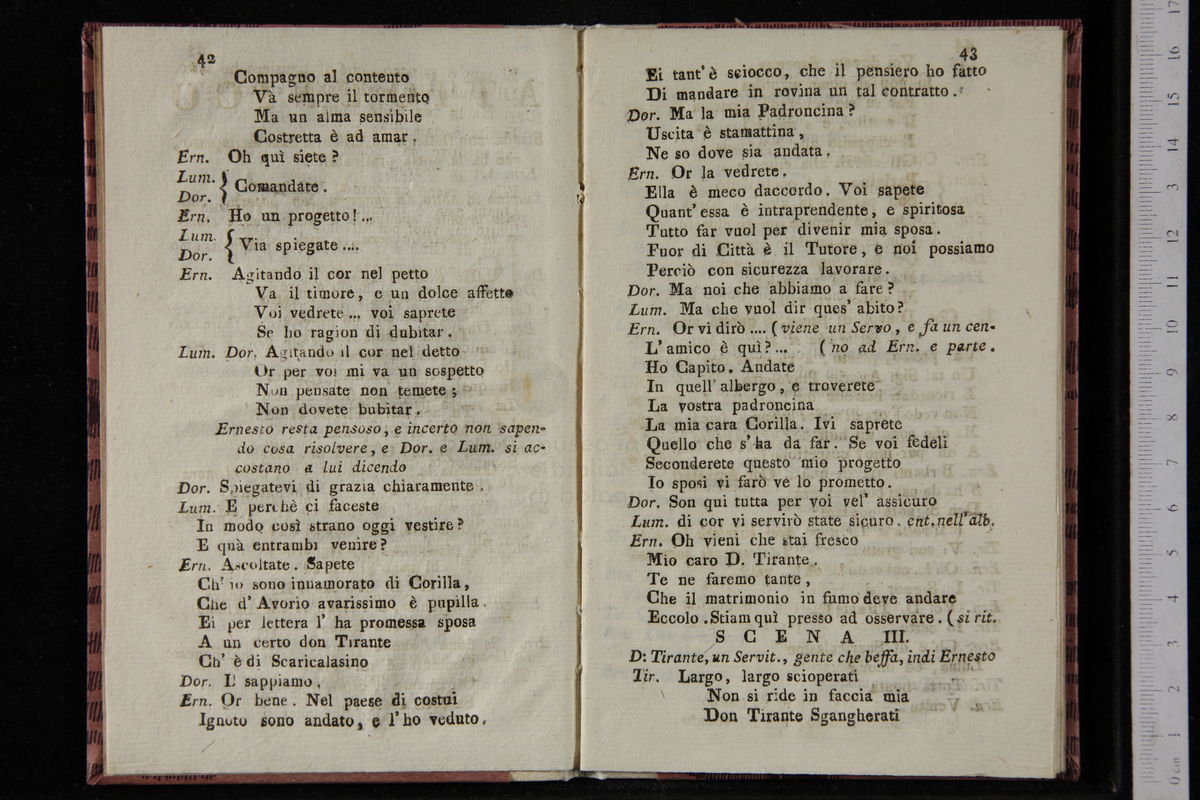 42
Compagno al contento
Và sempre il tormento
Ma un alma sensibile
Costretta è ad amar.
Ern. Oh quì siete?
Lum.
Dor. } Comandate.
Ern. Ho un progetto!...
Lum.
Dor. { Via spiegate....
Ern. Agitando il cor nel petto
Va il timore, e un dolce affetto
Voi vedrete... voi saprete
Se ho ragion di dubitar.
Lum. Dor. Agitando il cor nel detto
Or per voi mi va un sospetto
Non pensate non temete;
Non dovete bubitar.
Ernesto resta pensoso, e incerto non sapen-
do cosa risolvere, e Dor. e Lum. si ac-
costano a lui dicendo
Dor. Spiegatevi di grazia chiaramente.
Lum. E perchè ci faceste
In modo così strano oggi vestire?
E quà entrambi venire?
Ern. Ascoltate. Sapete
Ch' io sono innamorato di Corilla,
Che d' Avorio avarissimo è pupilla.
Ei per lettera l' ha promessa sposa
A un certo don Tirante
Ch' è di Scaricalasino
Dor. L' sappiamo.
Ern. Or bene. Nel paese di costui
Ignoto sono andato, e l' ho veduto.
43
Ei tant' è sciocco, che il pensiero ho fatto
Di mandare in rovina un tal contratto.
Dor. Ma la mia Padroncina?
Uscita è stamattina,
Ne so dove sia andata.
Ern. Or la vedrete.
Ella è meco daccordo. Voi sapete
Quant' essa è intraprendente, e spiritosa
Tutto far vuol per divenir mia sposa.
Fuor di Città è il Tutore, e noi possiamo
Perciò con sicurezza lavorare.
Dor. Ma noi che abbiamo a fare?
Lum. Ma che vuol dir ques' abito?
Ern. Or vi dirò .... ( viene un Servo, e fa un cen-
L' amico è quì?... ( no ad Ern. e parte.
Ho Capito. Andate
In quell' albergo, e troverete
La vostra padroncina
La mia cara Corilla. Ivi saprete
Quello che s' ha da far. Se voi fedeli
Seconderete questo mio progetto
Io sposi vi farò ve lo prometto.
Dor. Son qui tutta per voi vel' assicuro
Lum. di cor vi servirò state sicuro. ent. nell' alb.
Ern. Oh vieni che stai fresco
Mio caro D. Tirante.
Te ne faremo tante,
Che il matrimonio in fumo deve andare
Eccolo. Stiam quì presso ad osservare. ( si rit.
SCENA III.
D: Tirante, un Servit., gente che beffa, indi Ernesto
Tir. Largo, largo scioperati
Non si ride in faccia mia
Don Tirante Sgangherati